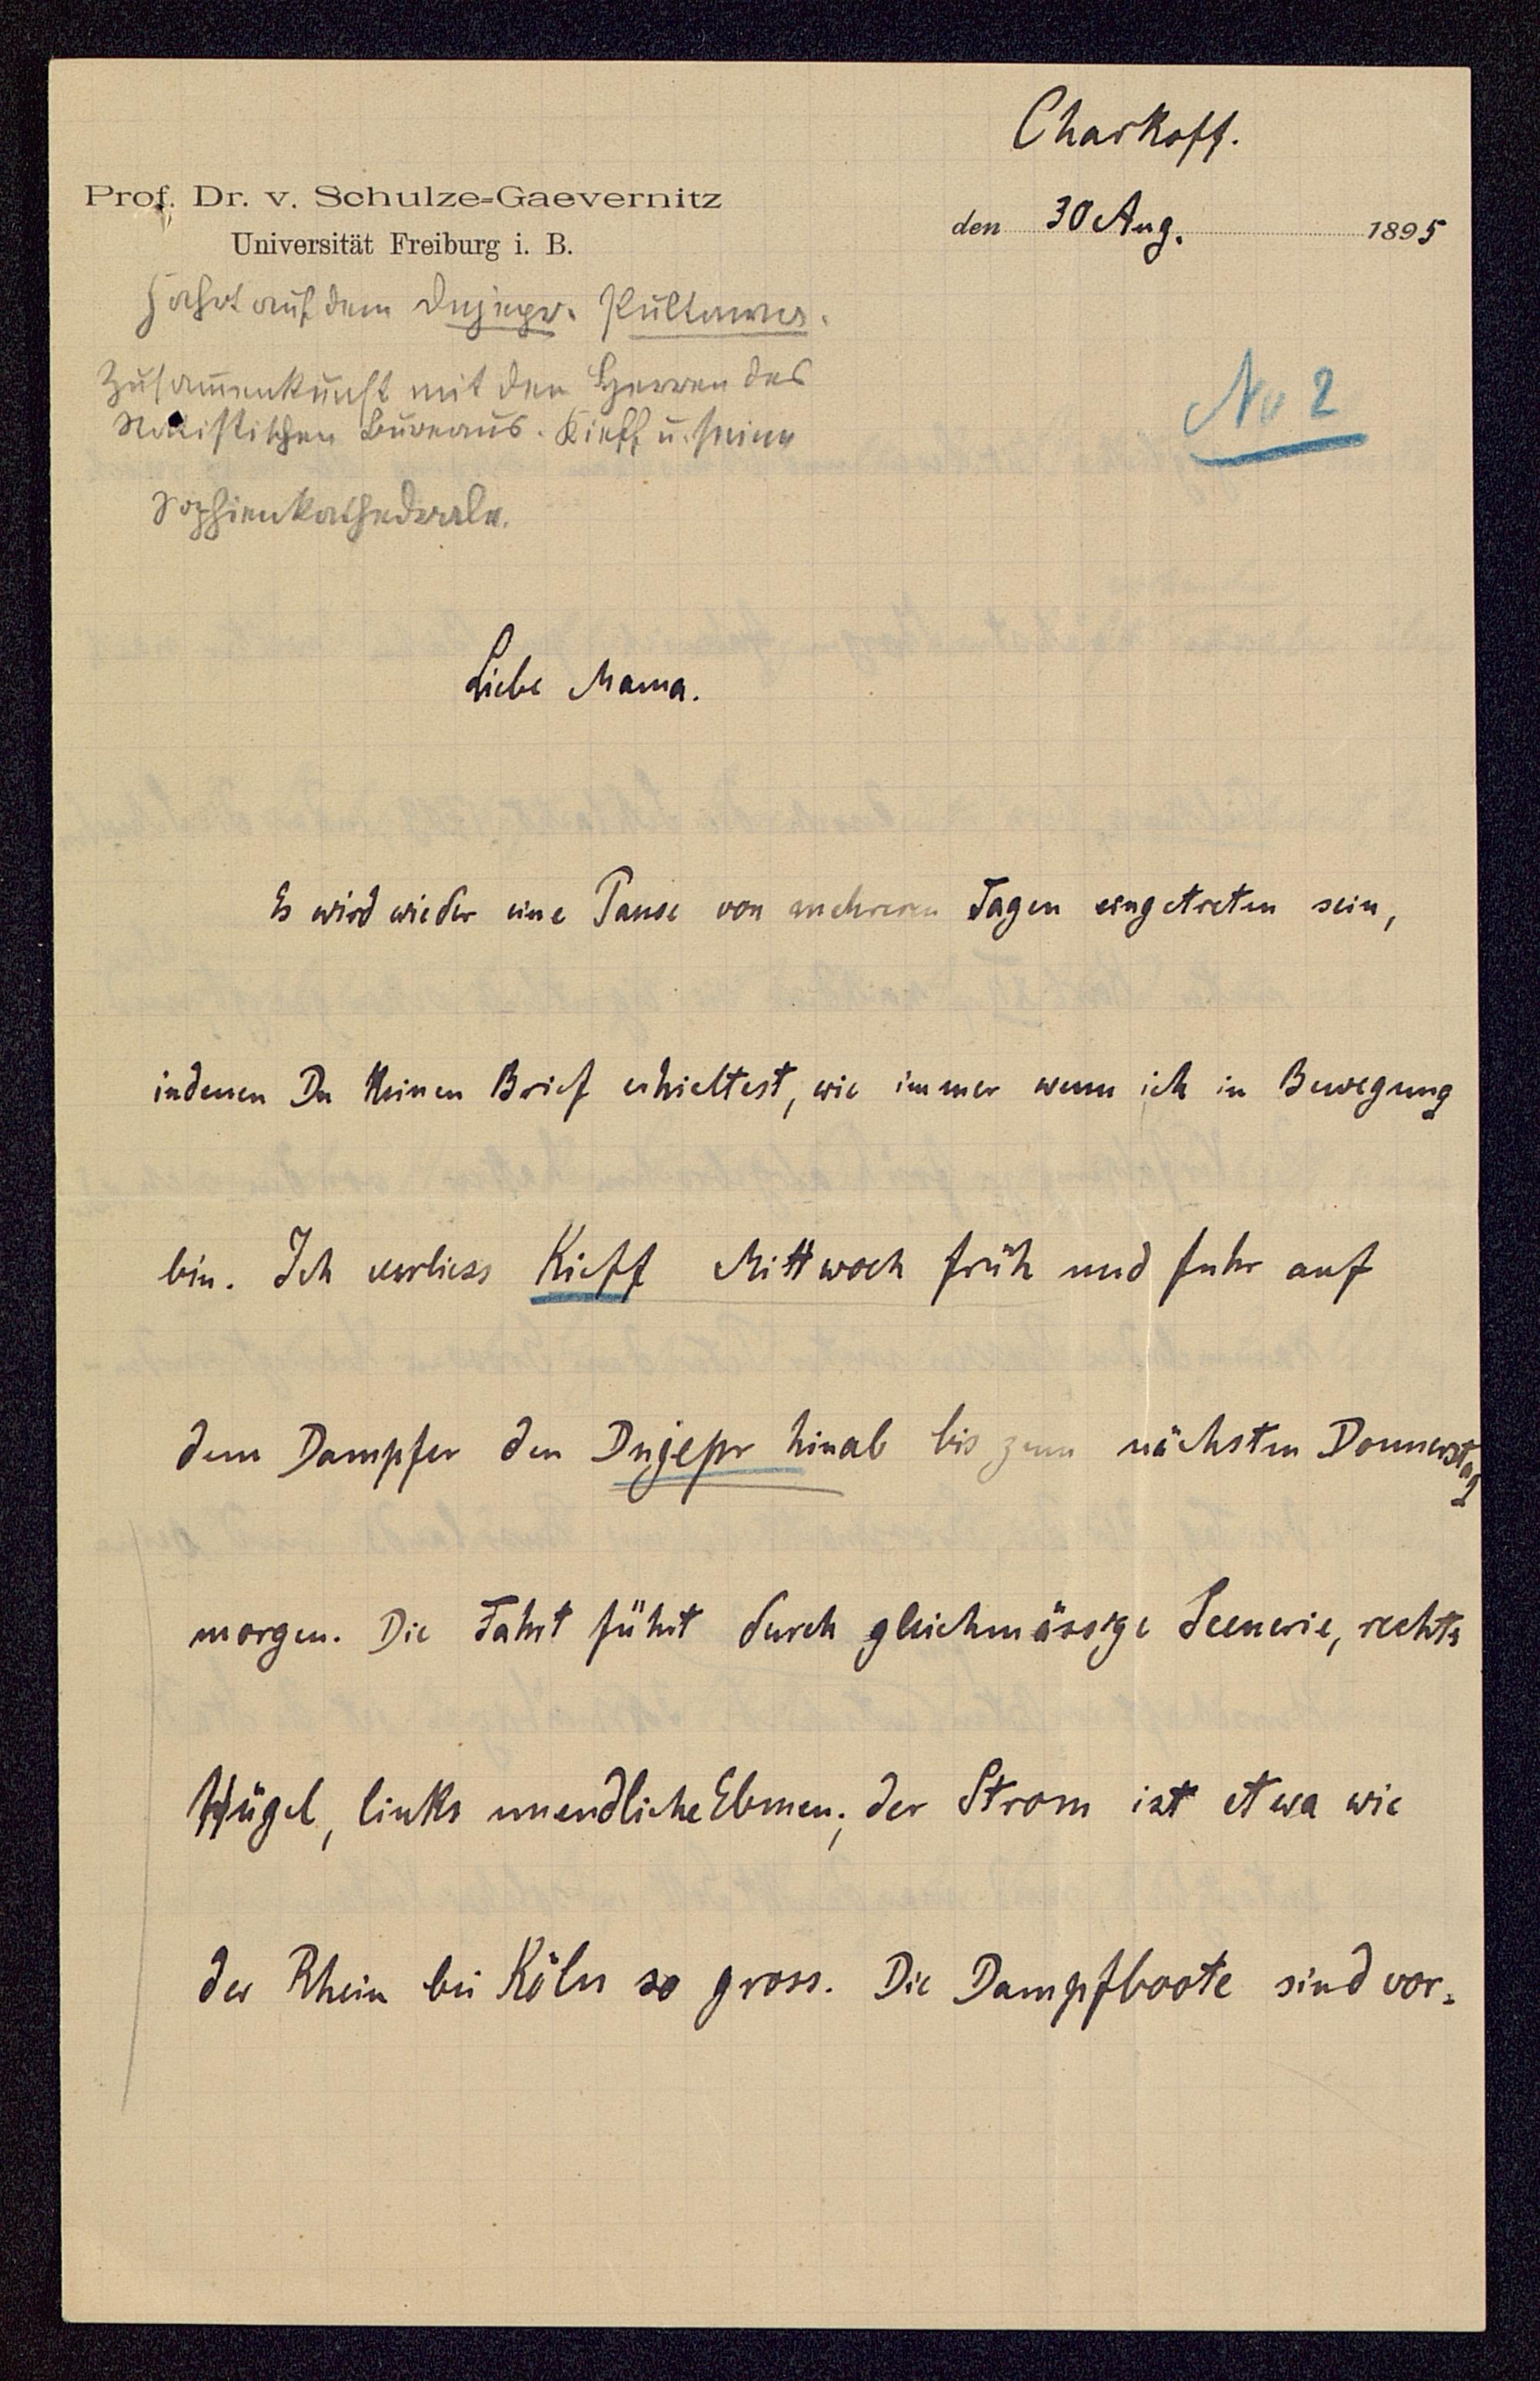 Charkoff.
Prof. Dr. v. Schulze-Gaevernitz
Universität Freiburg i. B.
den 30 Aug. 1895
Fahrt auf dem Dnjepr. Pultawa.
Zusammenkunft mit den Herren des
statistischen Bureaus. Kieff u. seine
Sophienkathedrale.
No 2
Liebe Mama.
Es wird wieder eine Pause von mehreren Tagen eingetreten sein,
indenen Du keinen Brief erhieltest, wie immer wenn ich in Bewegung
bin. Ich verliess Kieff Mittwoch früh und fuhr auf
dem Dampfer den Dnjepr hinab bis zum nächsten Donnerstag
morgen. Die Fahrt führt durch gleichmässige Scenerie, rechts
Hügel, links unendliche Ebenen; der Strom ist etwa wie
der Rhein bei Köln so gross. Die Dampfboote sind vor-